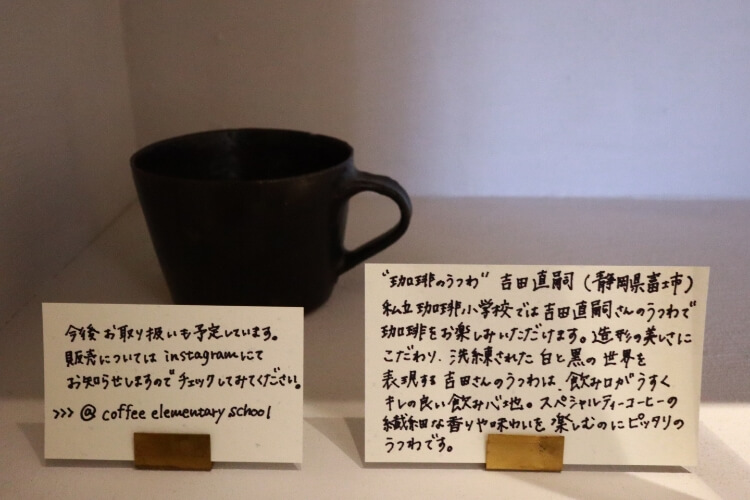 今後お取り扱いも予定しています。
販売については instagramにて
お知らせしますのでチェックしてみてください。
>>> @ coffee elementary school
"珈琲のうつわ" 吉田直嗣 (静岡県富士市)
私立珈琲小学校では吉田直嗣さんのうつわで
珈琲をお楽しみいただけます。造形の美しさに
こだわり、洗練された白と黒の世界を
表現する吉田さんのうつわは、飲み口がうすく
キレの良い飲み心地。スペシャルティーコーヒーの
繊細な香りや味わいを楽しむのにピッタリの
うつわです。